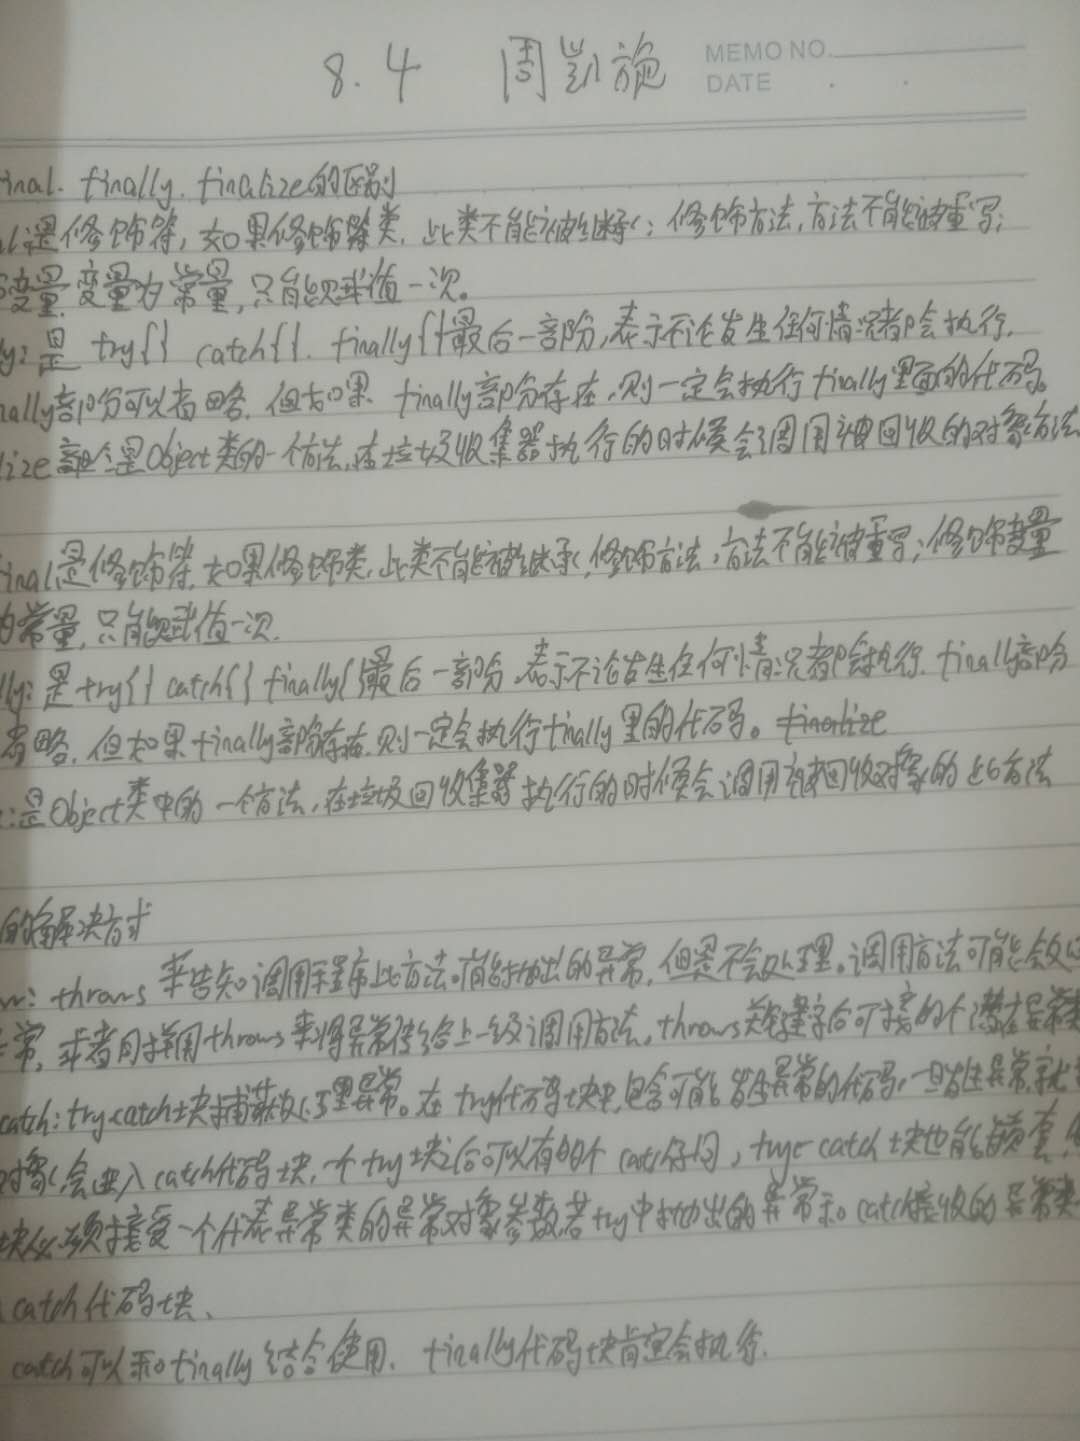 8.4 周凯旋 MEMO NO.
DATE
inal. finally. finalize的区别
l:是修饰符,如果修饰类,此类不能被继承;修饰方法,方法不能被重写;
变量,变量为常量,只能赋值一次。
ly:是 try{} catch{}. finally{}最后一部分,表示不论发生任何情况都会执行.
nally部份可以省略,但如果 finally部分存在,则一定会执行finally里面的代码。
lize 是Object类的一个方法,在垃圾收集器执行的时候会调用被回收的对象方法
inal是修饰符,如果修饰类,此类不能被继承,修饰方法,方法不能被重写;修饰变量
为常量,只能赋值一次.
lly:是try{} catch{} finally{}最后一部分,表示不论发生任何情况都会执行. finally部份
省略,但如果finally部份存在,则一定会执行finally里的代码。finalize
:是Object类中的一个方法,在垃圾回收集器执行的时候会调用被回收对象的此方法
的解决方式
w: throws 来告知调用程序此方法可能抛出的异常,但是不会处理。调用方法可能会处
常,或者同样用throws来将异常传给上一级调用方法。throws关键字后可接的个潜在异常类
catch:try-catch块捕获处理异常。在try代码块中,包含可能发生异常的代码,一旦发生异常,就
对象,会进入catch代码块,个try块后可以有的个catch子句,try-catch块也能嵌套,
块必须接受一个代表异常类的异常对象参数,若try中抛出的异常和catch接收的异常类
catch代码块、
catch可以和finally结合使用、finally代码块肯定会执行.